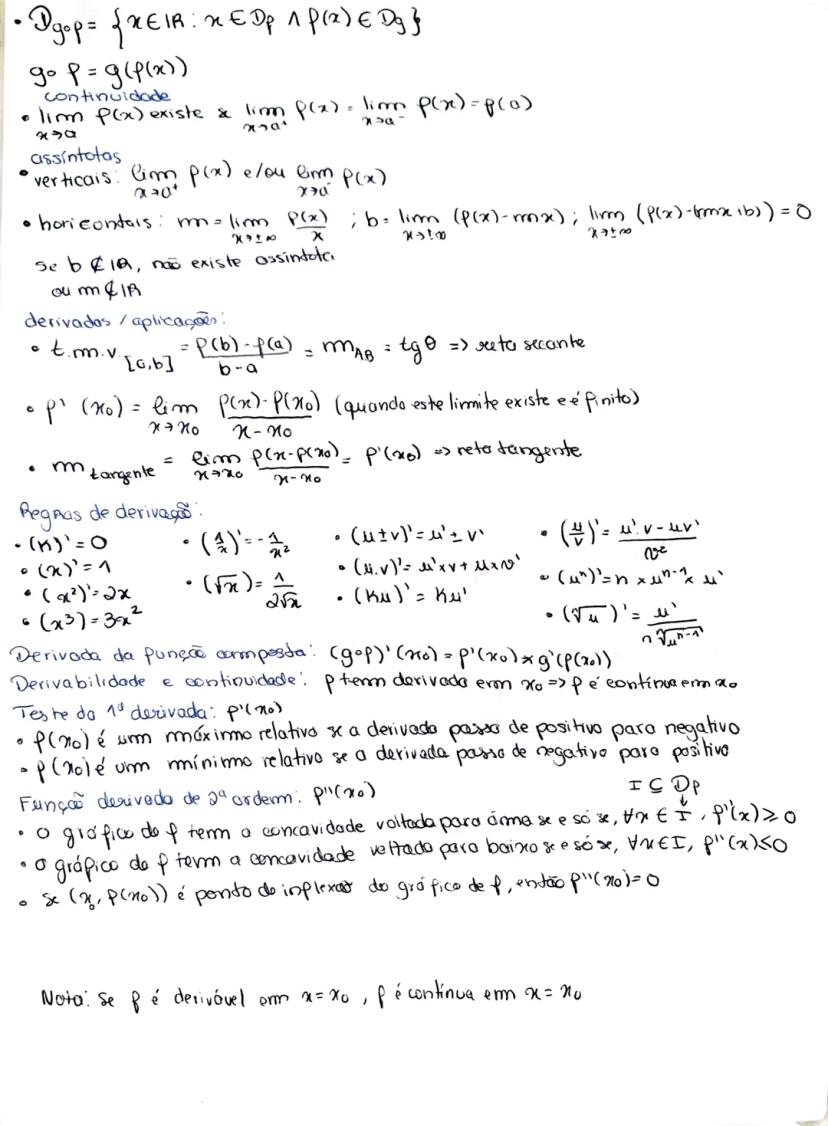 • D_{g∘f} = {x ∈ IR : x ∈ D_f ∧ f(x) ∈ D_g}
g∘f = g(f(x))
continuidade
• lim_{x→a} f(x) existe & lim_{x→a⁺} f(x) = lim_{x→a⁻} f(x) = f(a)
assíntotas
• verticais: lim_{x→a⁺} f(x) e/ou lim_{x→a⁻} f(x)
• horizontais: m = lim_{x→±∞} f(x)/x ; b = lim_{x→±∞} (f(x)-mx) ; lim_{x→±∞} (f(x)-(mx+b)) = 0
Se b ∉ IR, não existe assíntota
ou m ∉ IR
derivadas / aplicações:
• t.m.v._{[a,b]} = f(b)-f(a)/b-a = m_{AB} = tg θ => reta secante
• f'(x₀) = lim_{x→x₀} f(x)-f(x₀)/x-x₀ (quando este limite existe e é finito)
• m_{tangente} = lim_{x→x₀} f(x-f(x₀)/x-x₀ = f'(x₀) => reta tangente
Regras de derivação:
• (K)' = 0 • (1/x)' = -1/x² • (u±v)' = u' ± v' • (u/v)' = u'.v - uv'/v²
• (x)' = 1 • (√x) = 1/2√x • (u.v)' = u'×v + u×v' • (uⁿ)' = n × uⁿ⁻¹ × u'
• (x²)' = 2x • (Ku)' = Ku' • (ⁿ√u)' = u'/n ⁿ√uⁿ⁻¹
• (x³) = 3x²
Derivada da função composta: (g∘f)'(x₀) = f'(x₀) × g'(f(x₀))
Derivabilidade e continuidade: f tem derivada em x₀ => f é contínua em x₀
Teste da 1ª derivada: f'(x₀)
• f(x₀) é um máximo relativo se a derivada passa de positivo para negativo
• f(x₀) é um mínimo relativo se a derivada passa de negativo para positivo
Função derivada de 2ª ordem: f''(x₀) I ⊆ D_f
• O gráfico de f tem a concavidade voltada para cima se e só se, ∀x ∈ I, f''(x) ≥ 0
• O gráfico de f tem a concavidade voltada para baixo se e só se, ∀x ∈ I, f''(x) ≤ 0
• se (x₀, f(x₀)) é ponto de inflexão do gráfico de f, então f''(x₀) = 0
Nota: Se f é derivável em x = x₀, f é contínua em x = x₀